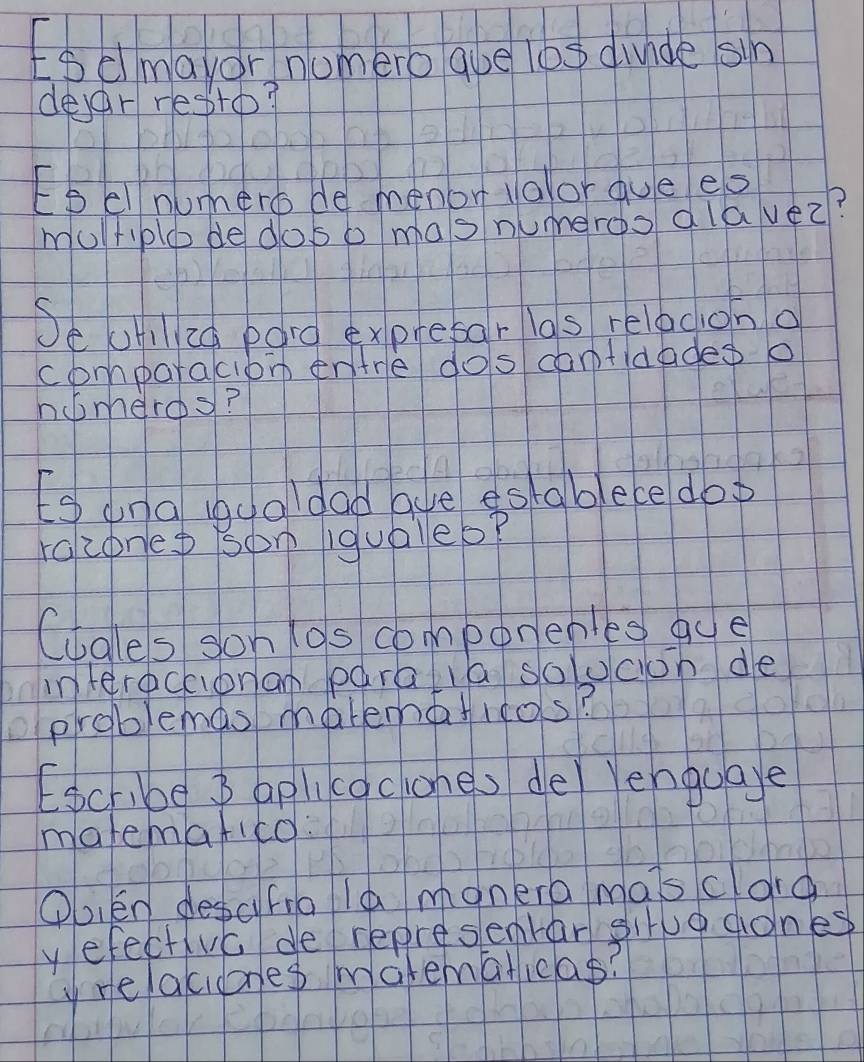 Es el mayor numero que los divide sin
dejar resto?
Es el numero de menor valor que es
multiplo de dos o mas numeros a la vez?
Se utiliza para expresar las relación o
comparación entre dos cantidades o
números?
Es una igualdad que establece dos
razones son iguales?
Cuales son los componentes que
interaccionan para la solución de
problemas matemáticos?
Escribe 3 aplicaciones del lenguaje
matematico:
Quién descifro la manera más clara
y efectiva de representar situaciones
y relaciones matemáticas?